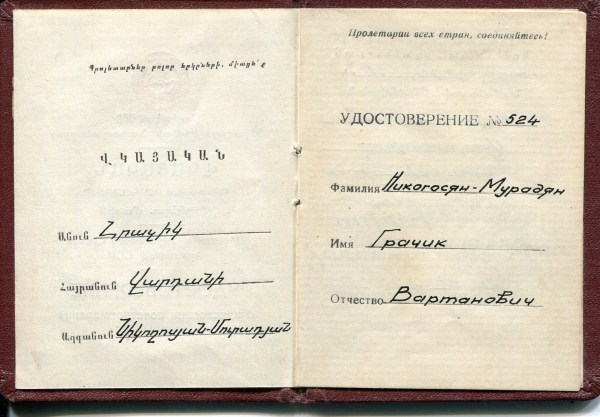 Պրոլետարներ բոլոր երկրների, միացե՛ք
ՎԿԱՅԱԿԱՆ
Անուն Հրաչիկ
Հայրանուն Վարդանի
Ազգանուն Նիկողոսյան-Մուրադյան
Пролетарии всех стран, соединяйтесь!
УДОСТОВЕРЕНИЕ № 524
Фамилия Никогосян-Мурадян
Имя Грачик
Отчество Вартанович